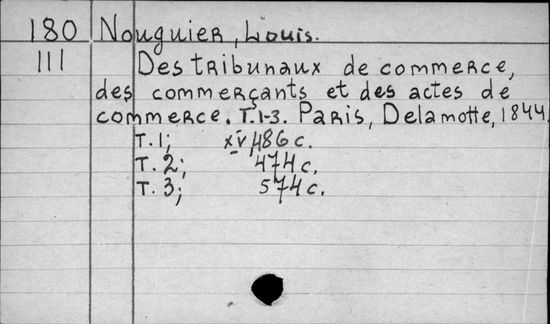 180 Nouguier, Louis.
III Des tribunaux de commerce,
des commerçants et des actes de
commerce. T.1-3. Paris, Delamotte, 1844.
T. 1; XV, 486 c.
T. 2; 474 c.
T. 3; 574 c.